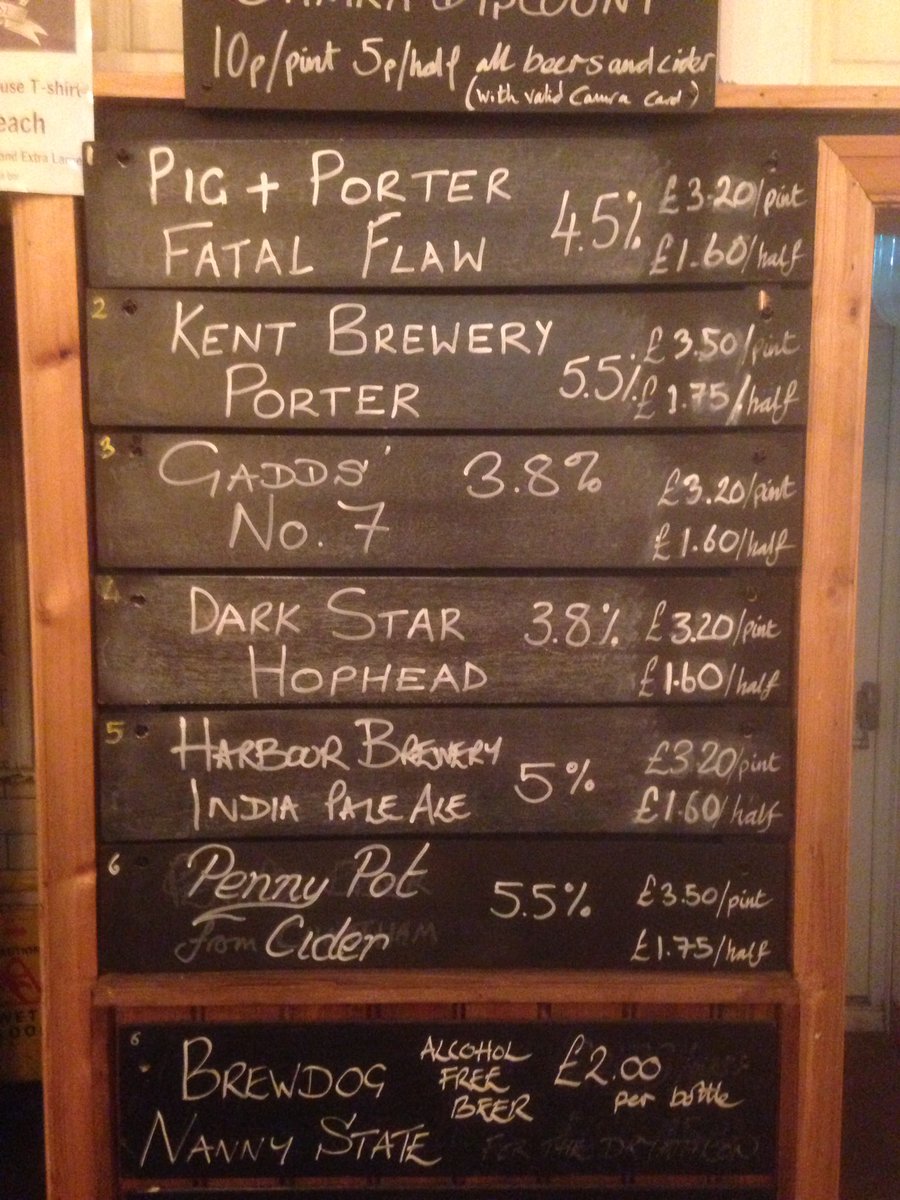 CAMRA DISCOUNT
10p/pint 5p/half all beers and cider
(with valid Camra card)
use T-shirt
each
and Extra Large
PIG + PORTER
FATAL FLAW
4.5%
£3.20/pint
£1.60/half
2
KENT BREWERY
PORTER
5.5%
£3.50/pint
£1.75/half
3
GADDS'
No. 7
3.8%
£3.20/pint
£1.60/half
4
DARK STAR
HOPHEAD
3.8%
£3.20/pint
£1.60/half
5
HARBOUR BREWERY
INDIA PALE ALE
5%
£3.20/pint
£1.60/half
6
Penny Pot
from Cider
5.5%
£3.50/pint
£1.75/half
6
BREWDOG
NANNY STATE
ALCOHOL
FREE
BEER
£2.00
per bottle
FOR THE